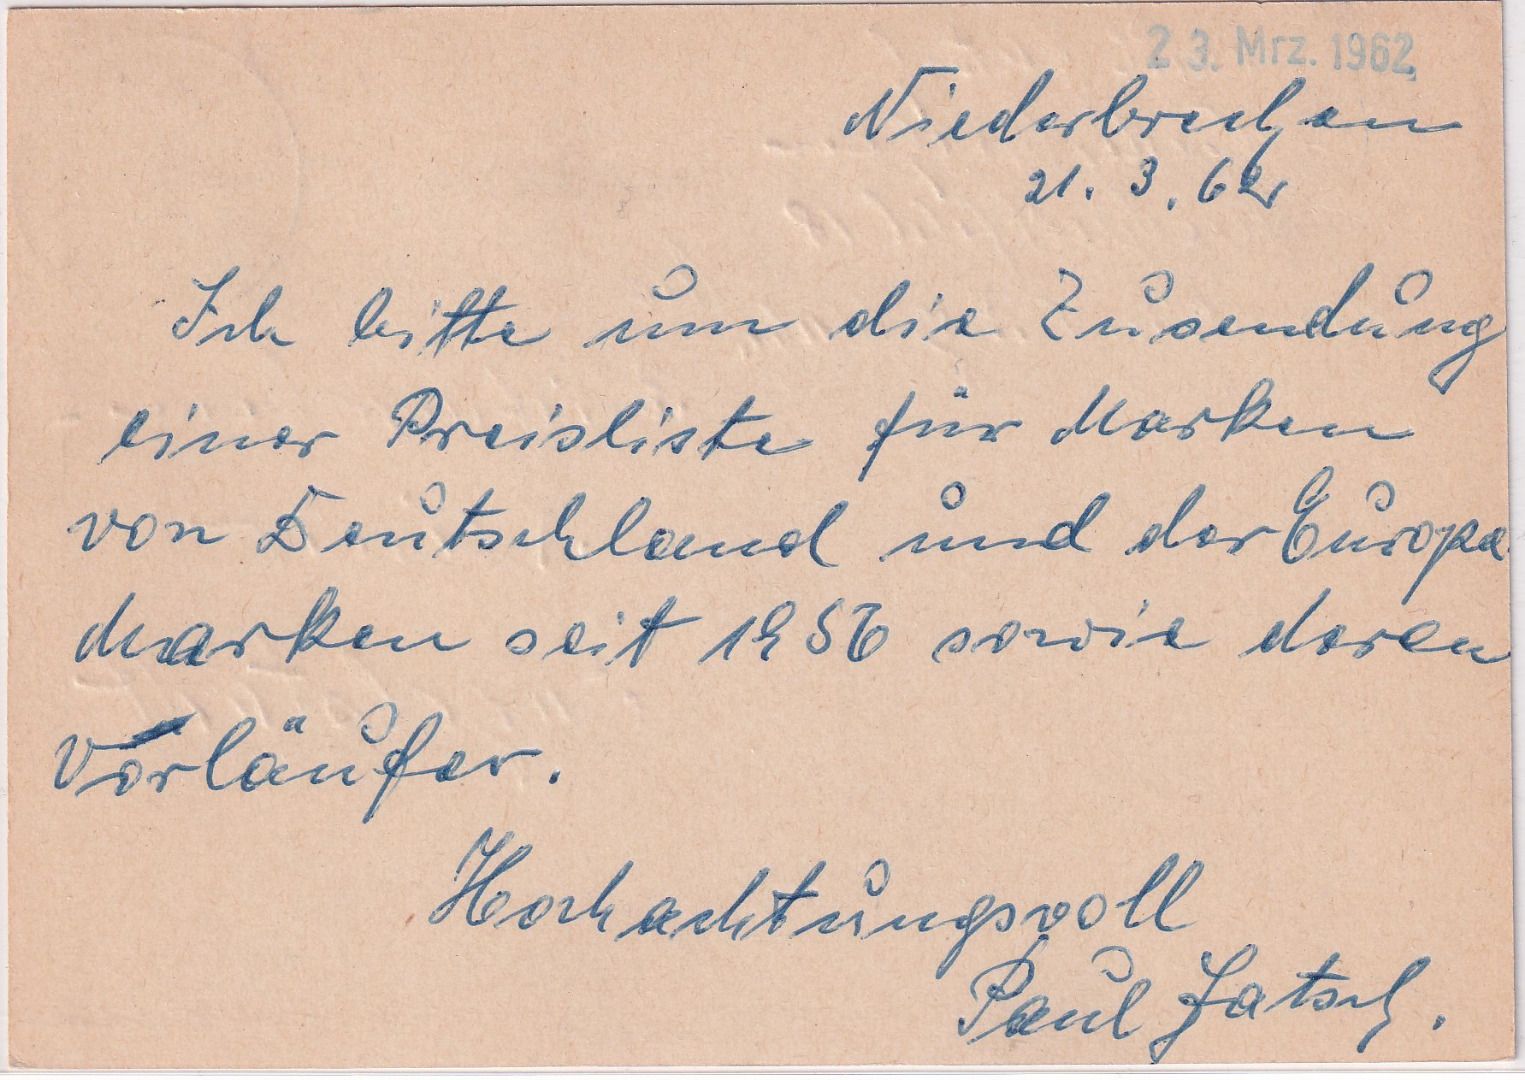 23. Mrz. 1962
Niederbrechen
21. 3. 62
Ich bitte um die Zusendung
einer Preisliste für Marken
von Deutschland und der Europa
Marken seit 1956 sowie deren
Vorläufer.
Hochachtungsvoll
Paul Jatsch.